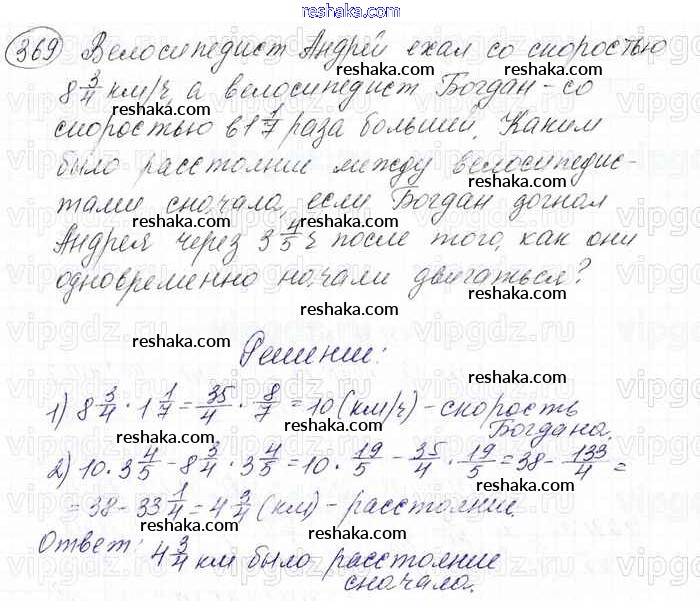 reshaka.com
369 Велосипедист Андрей ехал со скоростью
reshaka.com reshaka.com
8 3/4 км/ч, а велосипедист Богдан - со
reshaka.com reshaka.com
скоростью в 1 1/7 раза большей. Каким
reshaka.com reshaka.com
было расстояние между велосипедис-
reshaka.com reshaka.com
тами сначала, если Богдан догнал
reshaka.com reshaka.com
Андрея через 3 4/5 ч после того, как они
reshaka.com reshaka.com
одновременно начали двигаться?
reshaka.com
vipgdz.ru
reshaka.com
Решение:
reshaka.com
1) 8 3/4 · 1 1/7 = 35/4 · 8/7 = 10 (км/ч) - скорость
Богдана.
reshaka.com reshaka.com
2) 10 · 3 4/5 - 8 3/4 · 3 4/5 = 10 · 19/5 - 35/4 · 19/5 = 38 - 133/4 =
reshaka.com reshaka.com
= 38 - 33 1/4 = 4 3/4 (км) - расстояние.
reshaka.com reshaka.com
Ответ: 4 3/4 км было расстояние
сначала.
reshaka.com reshaka.com